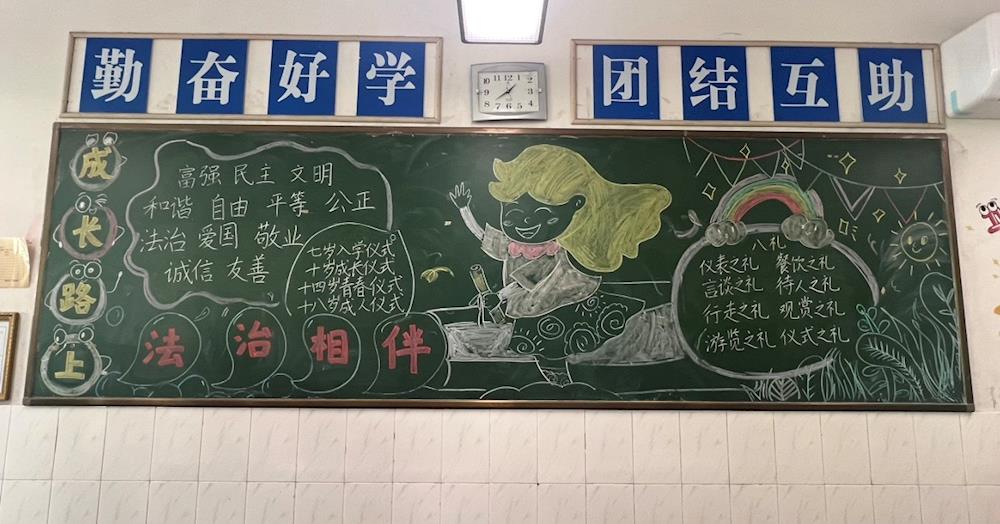 勤奋好学
团结互助
成长路上
富强 民主 文明
和谐 自由 平等 公正
法治 爱国 敬业
诚信 友善
七岁入学仪式
十岁成长仪式
十四岁青春仪式
十八岁成人仪式
法治相伴
八礼
仪表之礼 餐饮之礼
言谈之礼 待人之礼
行走之礼 观赏之礼
游览之礼 仪式之礼